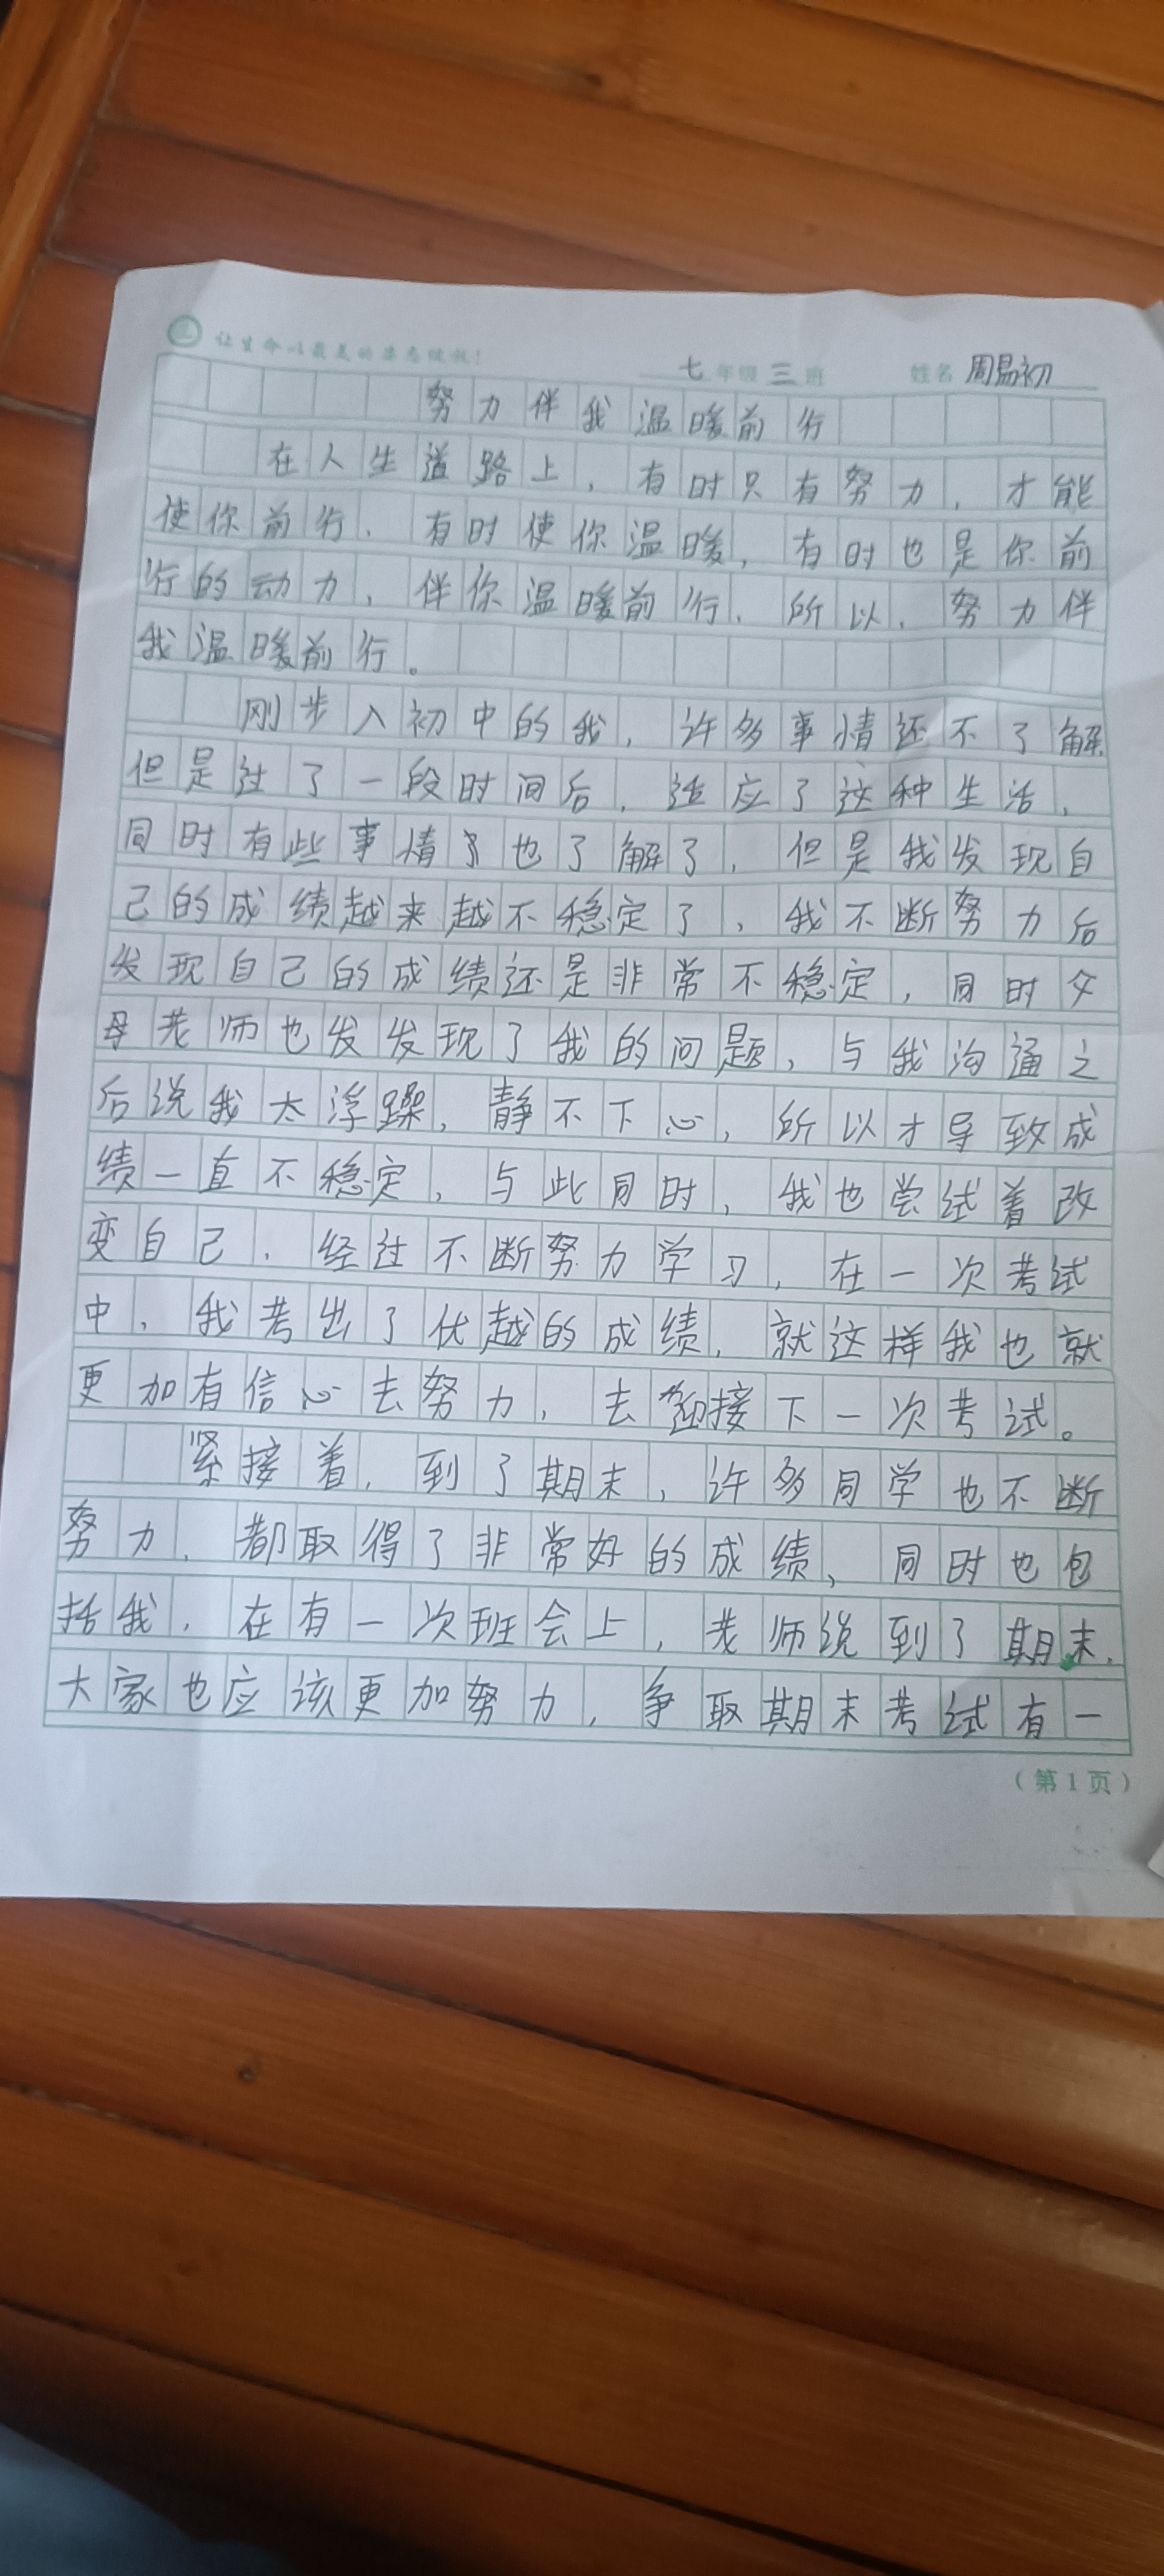 让生命以最美的姿态绽放！
七年级三班 姓名 周易初
努力伴我温暖前行
在人生道路上，有时只有努力，才能
使你前行，有时使你温暖，有时也是你前
行的动力，伴你温暖前行，所以，努力伴
我温暖前行。
刚步入初中的我，许多事情还不了解
但是过了一段时间后，适应了这种生活，
同时有些事情了也了解了，但是我发现自
己的成绩越来越不稳定了，我不断努力后
发现自己的成绩还是非常不稳定，同时父
母老师也发发现了我的问题，与我沟通之
后说我太浮躁，静不下心，所以才导致成
绩一直不稳定，与此同时，我也尝试着改
变自己，经过不断努力学习，在一次考试
中，我考出了优越的成绩，就这样我也就
更加有信心去努力，去迎接下一次考试。
紧接着，到了期末，许多同学也不断
努力，都取得了非常好的成绩、同时也包
括我，在有一次班会上，老师说到了期末，
大家也应该更加努力，争取期末考试有一
（第1页）